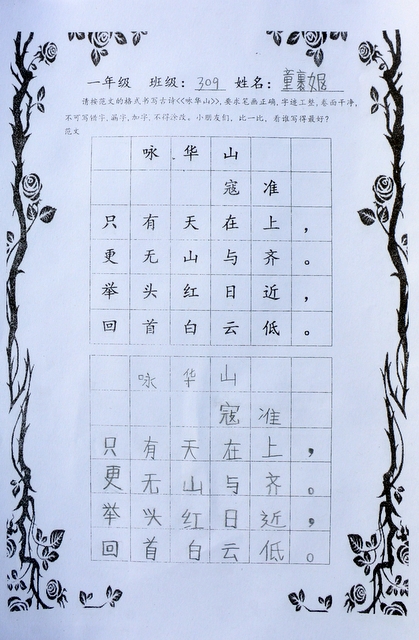 一年级 班级：309 姓名：童裹婮
请按范文的格式书写古诗《咏华山》，要求笔画正确，字迹工整，卷面干净，
不可写错字，漏字，加字，不得涂改。小朋友们，比一比，看谁写得最好？
范文
咏华山
寇准
只有天在上，
更无山与齐。
举头红日近，
回首白云低。
咏华山
寇准
只有天在上，
更无山与齐。
举头红日近，
回首白云低。